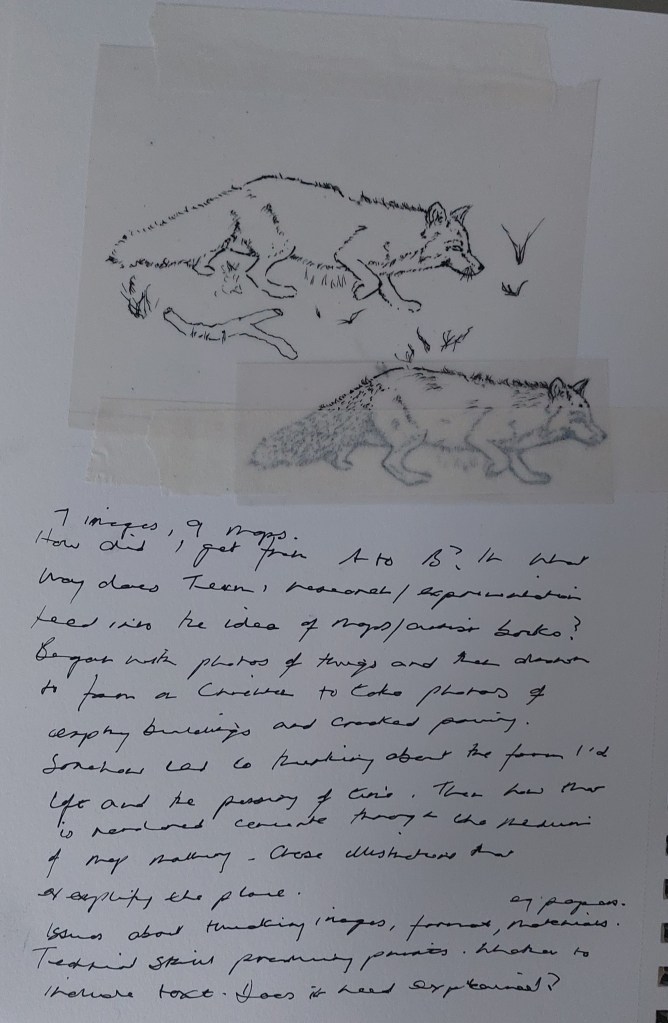 7 images, 9 maps.
How did I get from A to B? In what
way does Term 1 research/experimentation
feed into the idea of maps/artist books?
Began with photos of things and then
to farm
to take photos of
empty buildings and cracked paving.
Somehow led to thinking about the farm I'd
left and the passing of time. Then how that
is rendered concrete through the medium
of map making. Chose illustrations that
exemplify the place.
eg papers.
Issues about thinking images, format, materials.
Technical skill producing prints. Whether to
include text. Does it need explained?